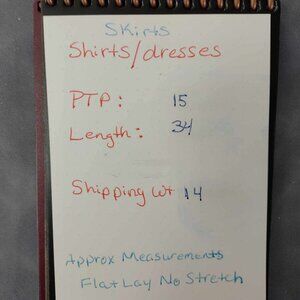 Skirts
Shirts/dresses
PTP: 15
Length: 34
Shipping wt 14
Approx Measurements
Flat Lay No Stretch